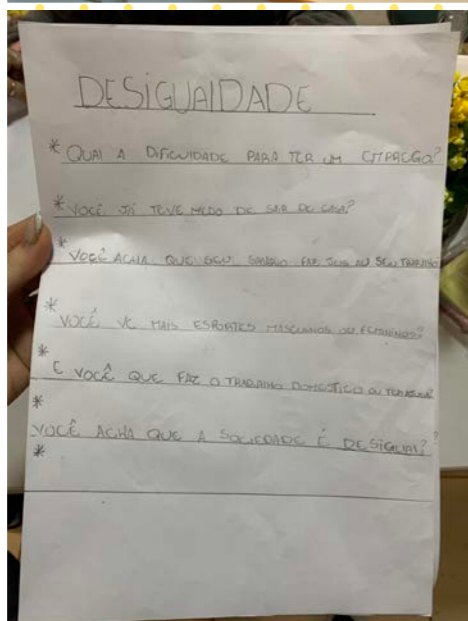 DESIGUALDADE
* QUAL A DIFICULDADE PARA TER UM EMPREGO?
* VOCÊ JÁ TEVE MEDO DE SAIR DE CASA?
* VOCÊ ACHA QUE SEU SALÁRIO FAZ JUS AO SEU TRABALHO
* VOCÊ VE MAIS ESPORTES MASCULINOS OU FEMININOS?
* E VOCÊ QUE FAZ O TRABALHO DOMESTICO OU
* VOCÊ ACHA QUE A SOCIEDADE É DESIGUAL?
*